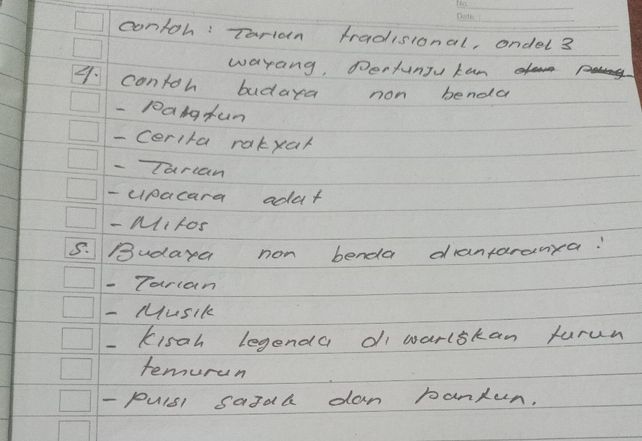 No.
Date.
contoh : Tarian tradisional, ondel 3
wayang, Pertunjukan
4. contoh budaya non benda
- Pantun
- Cerita rakyat
- Tarian
- upacara adat
- Mitos
5. Budaya non benda diantaranya :
- Tarian
- Musik
- Kisah legenda di wariskan turun
temurun
- puisi sajak dan pantun.